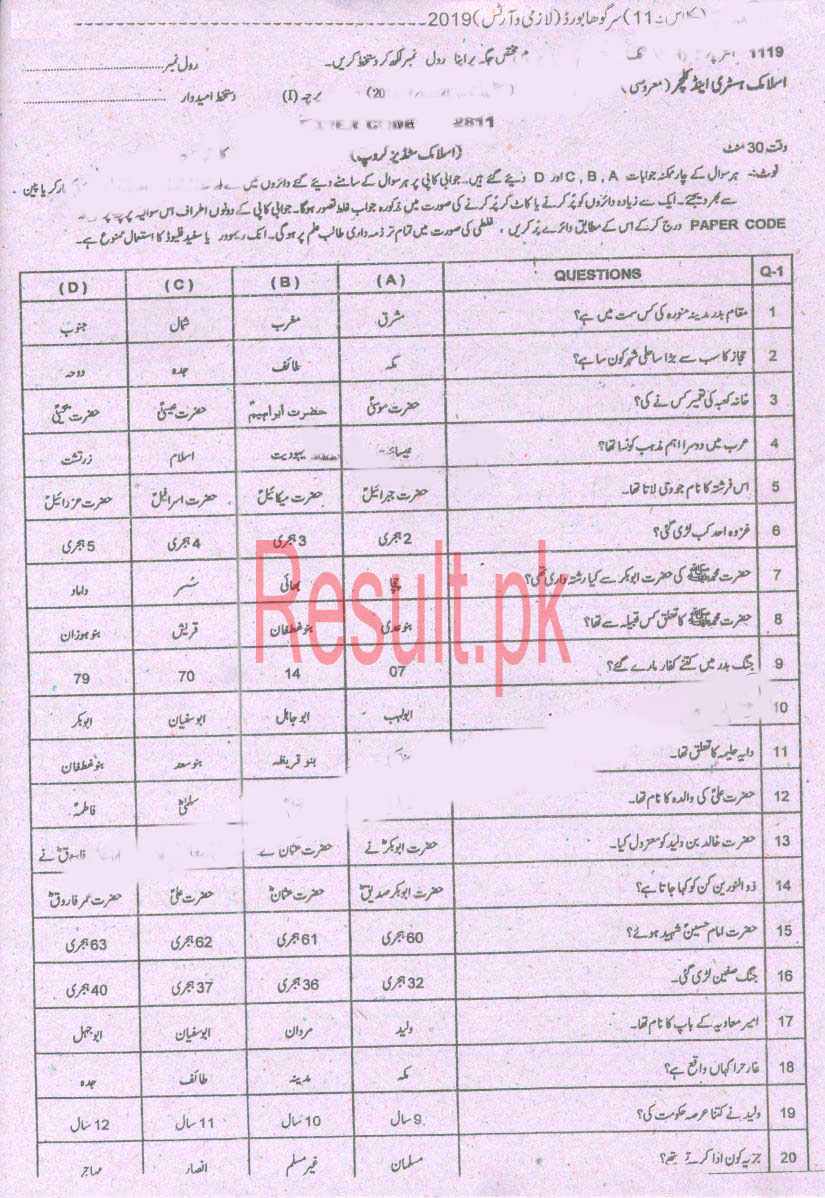 سرگودھا بورڈ (لازمی و آرٹس) 2019
1119 مختص جگہ پر اپنا رول نمبر لکھ کر دستخط کریں۔ رول نمبر
اسلامک ہسٹری اینڈ کلچر (معروضی) پرچہ (I) دستخط امیدوار
PAPER CODE 2811
وقت 30 منٹ (اسلامک سٹڈیز گروپ)
نوٹ:- ہر سوال کے چار ممکنہ جوابات A ، B ، C اور D دیئے گئے ہیں۔ جوابی کاپی پر ہر سوال کے سامنے دیئے گئے دائروں میں سے مارکر یا پین
سے بھر دیجئے۔ ایک سے زیادہ دائروں کو پُر کرنے یا کاٹ کر پُر کرنے کی صورت میں مذکورہ جواب غلط تصور ہوگا۔ جوابی کاپی کے دونوں اطراف اس سوالیہ پرچہ پر
PAPER CODE درج کر کے اس کے مطابق دائرے پُر کریں، غلطی کی صورت میں تمام تر ذمہ داری طالب علم پر ہوگی۔ انک ریموور یا سفید فلیوڈ کا استعمال ممنوع ہے۔
Q-1 QUESTIONS (A) (B) (C) (D)
1 مقام بدر مدینہ منورہ کی کس سمت میں ہے؟ مشرق مغرب شمال جنوب
2 حجاز کا سب سے بڑا ساحلی شہر کون سا ہے؟ مکہ طائف جدہ دوحہ
3 خانہ کعبہ کی تعمیر کس نے کی؟ حضرت موسیٰؑ حضرت ابراہیمؑ حضرت عیسیٰؑ حضرت یحییٰؑ
4 عرب میں دوسرا اہم مذہب کونسا تھا؟ یہودیت اسلام زرتشت
5 اس فرشتہ کا نام جو وحی لاتا تھا۔ حضرت جبرائیلؑ حضرت میکائیلؑ حضرت اسرافیلؑ حضرت عزرائیلؑ
6 غزوہ احد کب لڑی گئی؟ 2 ہجری 3 ہجری 4 ہجری 5 ہجری
7 حضرت محمد ﷺ کی حضرت ابوبکر سے کیا رشتہ داری تھی؟ چچا بھائی سُسر داماد
8 حضرت محمد ﷺ کا تعلق کس قبیلہ سے تھا؟ بنو عدی بنو غطفان قریش بنو ہوزان
9 جنگ بدر میں کتنے کفار مارے گئے؟ 07 14 70 79
10 ابولہب ابو جاہل ابوسفیان ابوبکر
11 دایہ حلیمہ کا تعلق تھا۔ بنو قریظہ بنو سعد بنو غطفان
12 حضرت علیؓ کی والدہ کا نام تھا۔ سلمیٰؓ فاطمہؓ
13 حضرت خالد بن ولید کو معزول کیا۔ حضرت ابوبکرؓ نے حضرت عثمان نے فاروقؓ نے
14 ذوالنورین کن کو کہا جاتا ہے؟ حضرت ابوبکر صدیقؓ حضرت عثمانؓ حضرت علیؓ حضرت عمر فاروقؓ
15 حضرت امام حسینؓ شہید ہوئے؟ 60 ہجری 61 ہجری 62 ہجری 63 ہجری
16 جنگ صفین لڑی گئی۔ 32 ہجری 36 ہجری 37 ہجری 40 ہجری
17 امیر معاویہ کے باپ کا نام تھا۔ ولید مردان ابوسفیان ابوجہل
18 غار حرا کہاں واقع ہے؟ مکہ مدینہ طائف جدہ
19 ولید نے کتنا عرصہ حکومت کی؟ 9 سال 10 سال 11 سال 12 سال
20 جزیہ کون ادا کرتے تھے؟ مسلمان غیر مسلم انصار مہاجر
Result.pk